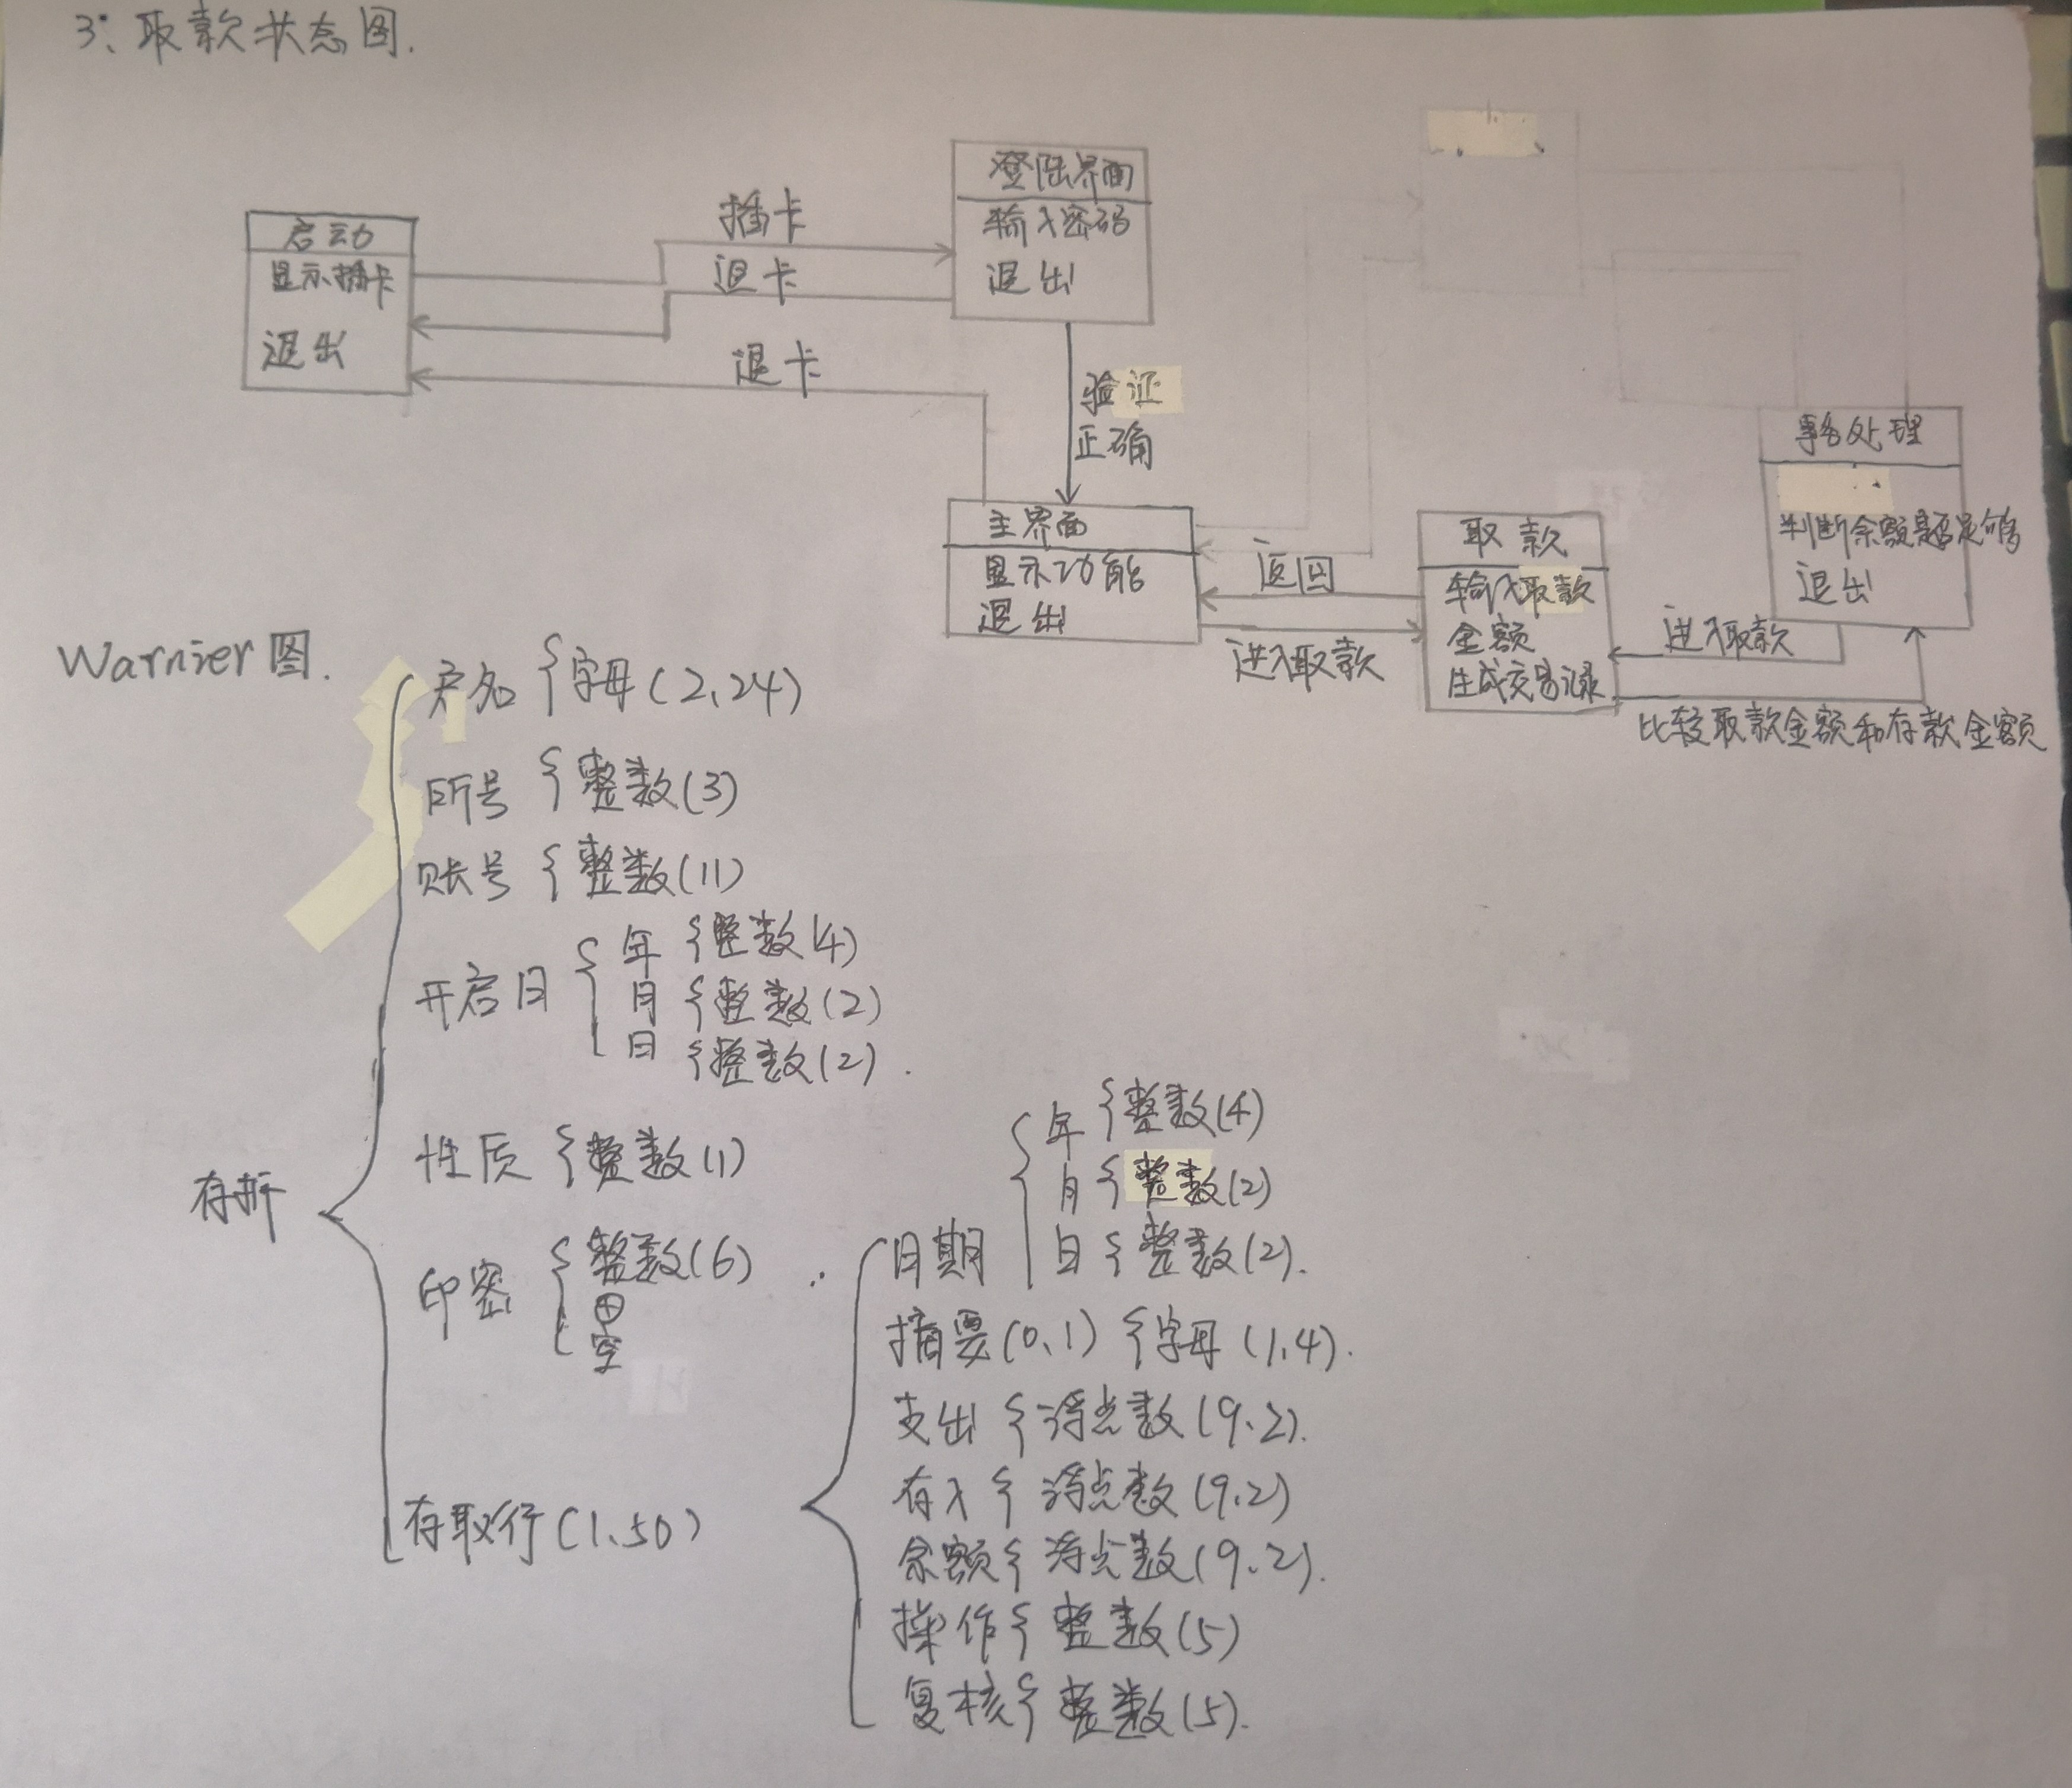 3、取款状态图.
启动
显示插卡
退出
插卡
退卡
退卡
登陆界面
输入密码
退出
验证
正确
主界面
显示功能
退出
返回
进入取款
取款
输入取款
金额
生成交易记录
事务处理
判断余额是否足够
退出
进入取款
比较取款金额和存款金额
Warnier图.
存折
户名{字母(2、24)
所号{整数(3)
账号{整数(11)
开启日
年{整数(4)
月{整数(2)
日{整数(2).
性质{整数(1)
印密
整数(6)
⊕
空
存取行(1、50)
日期
年{整数(4)
月{整数(2)
日{整数(2).
摘要(0、1){字母(1、4).
支出{浮点数(9、2).
存入{浮点数(9、2)
余额{浮点数(9、2).
操作{整数(5)
复核{整数(5).